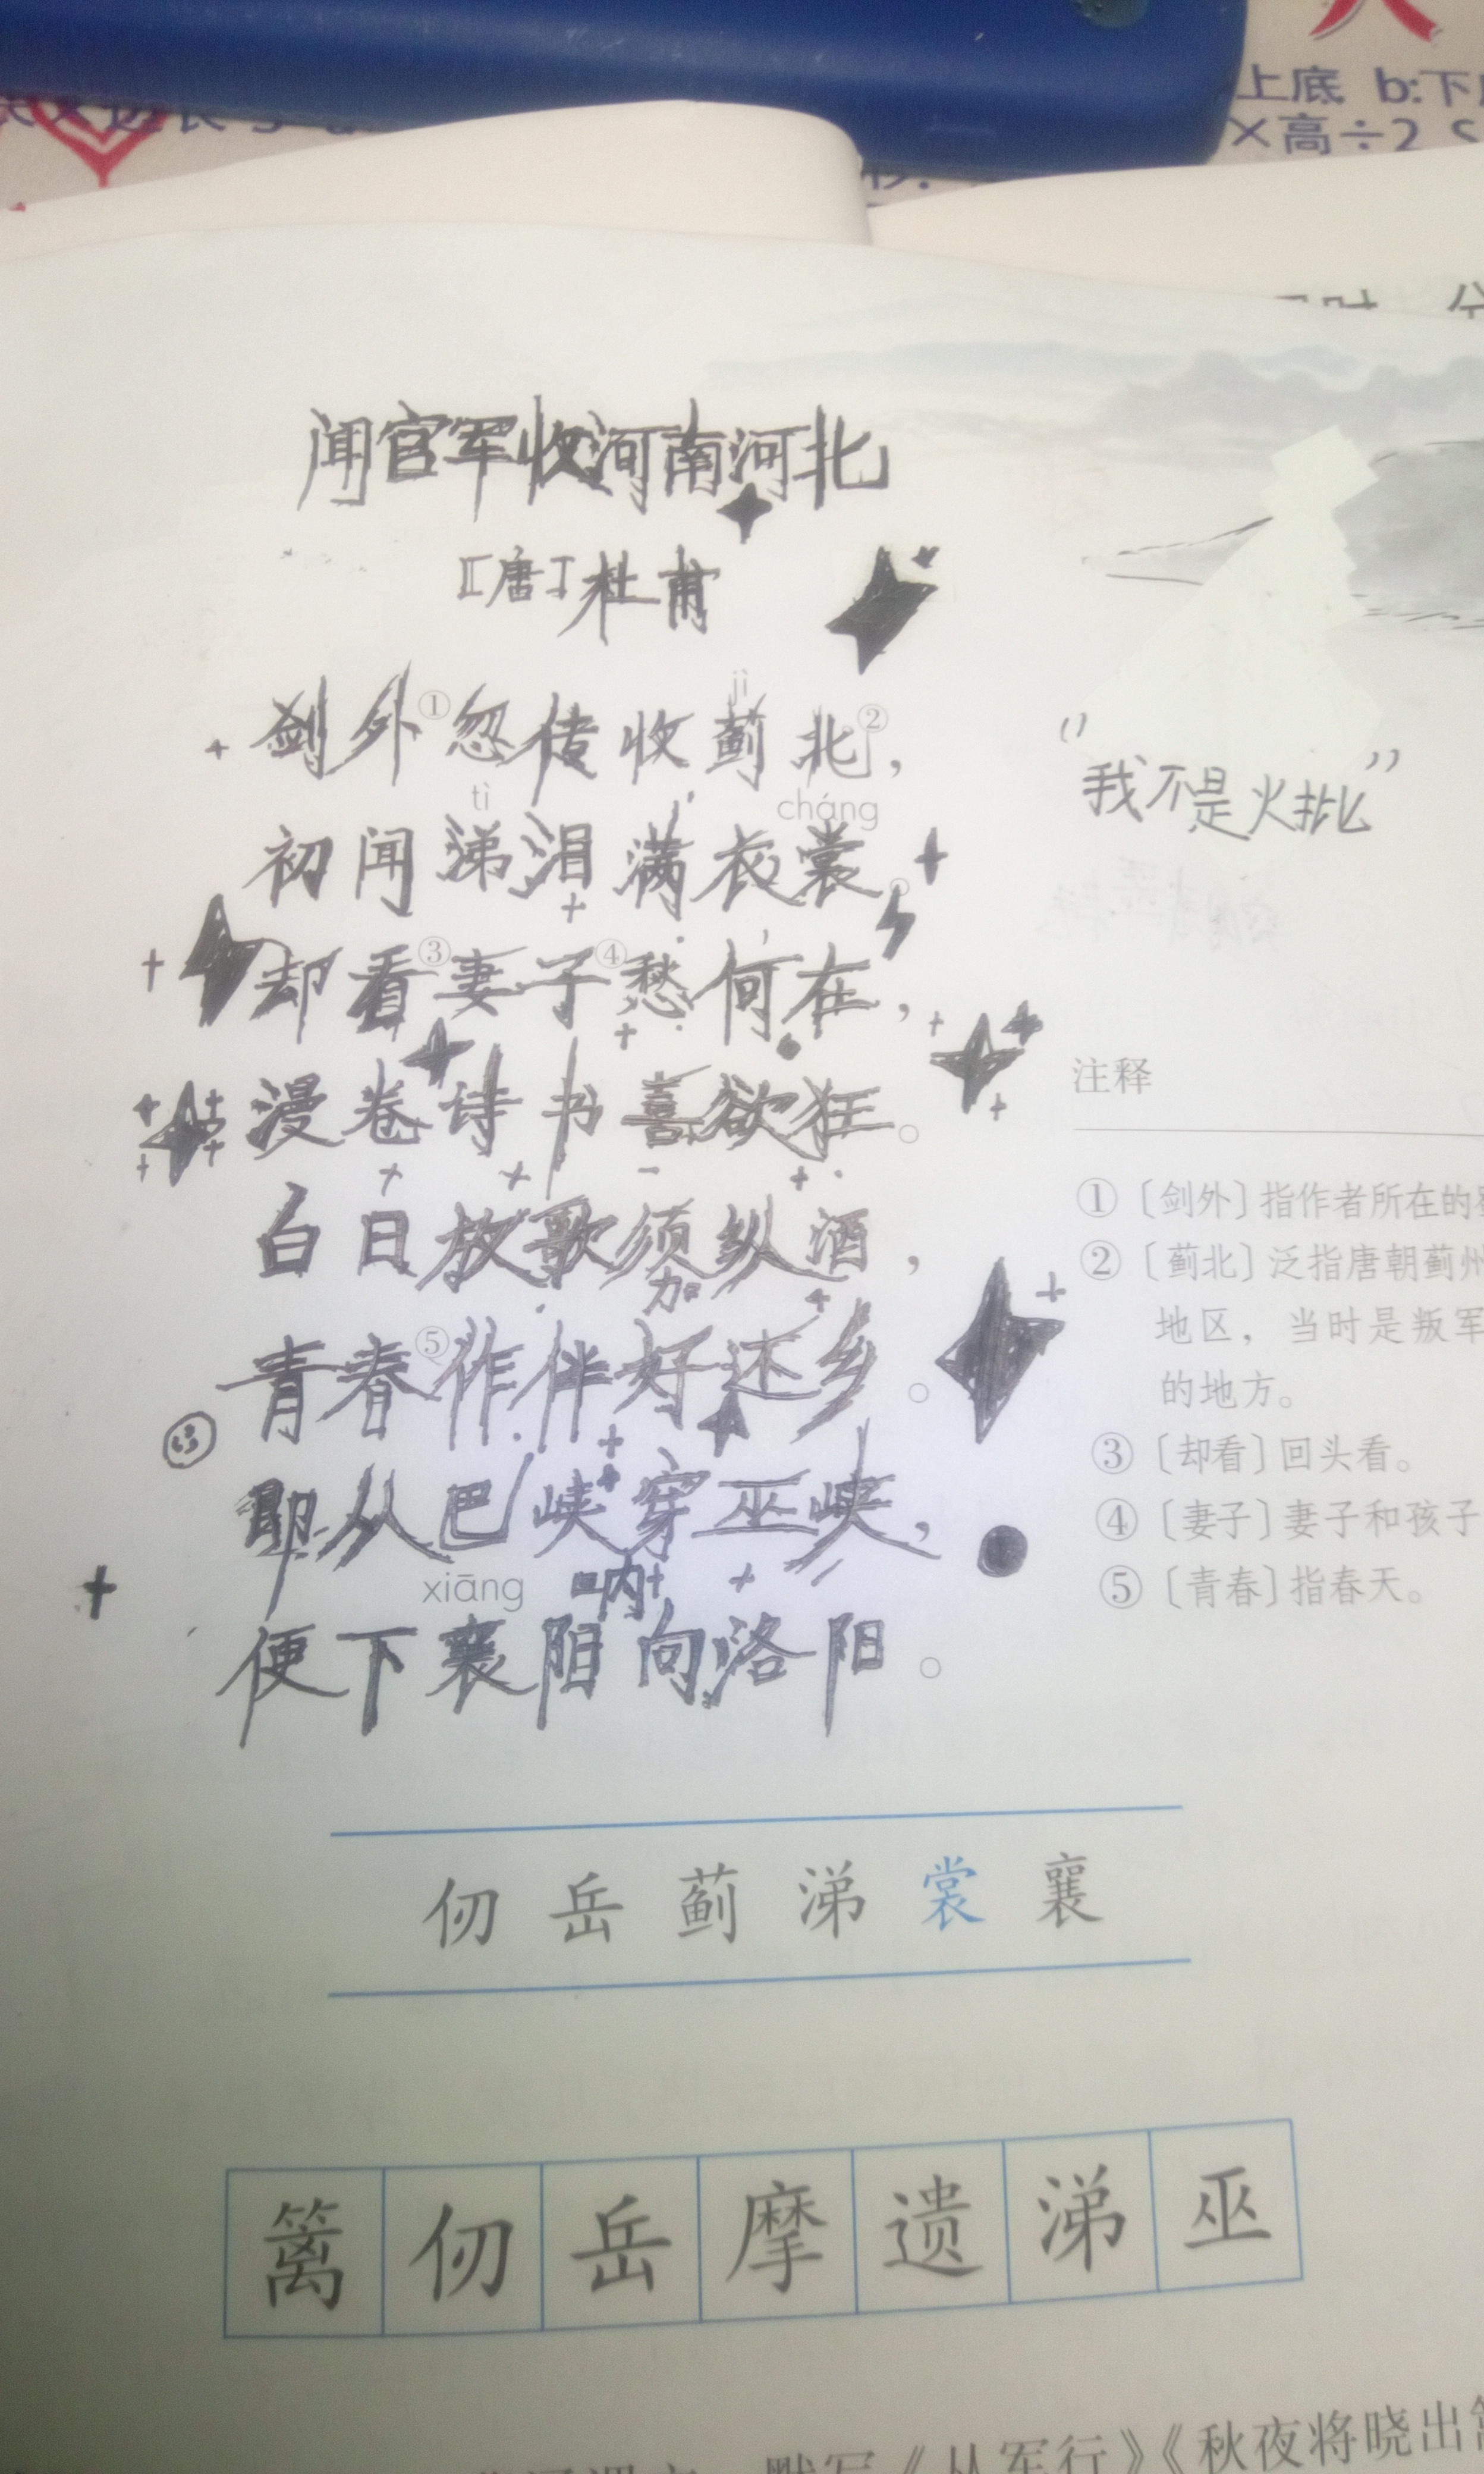 上底 b:下
×高÷2 S
闻官军收河南河北
[唐]杜甫
jì
剑外①忽传收蓟北②，
tì cháng
初闻涕泪满衣裳。
却看③妻子④愁何在，
漫卷诗书喜欲狂。
白日放歌须纵酒，
加
青春⑤作伴好还乡。
即从巴峡穿巫峡，
xiāng 呐
便下襄阳向洛阳。
“我不是火批”
注释
①〔剑外〕指作者所在的
②〔蓟北〕泛指唐朝蓟州
地区，当时是叛军
的地方。
③〔却看〕回头看。
④〔妻子〕妻子和孩子
⑤〔青春〕指春天。
仞 岳 蓟 涕 裳 襄
篱 仞 岳 摩 遗 涕 巫
默写《从军行》《秋夜将晓出